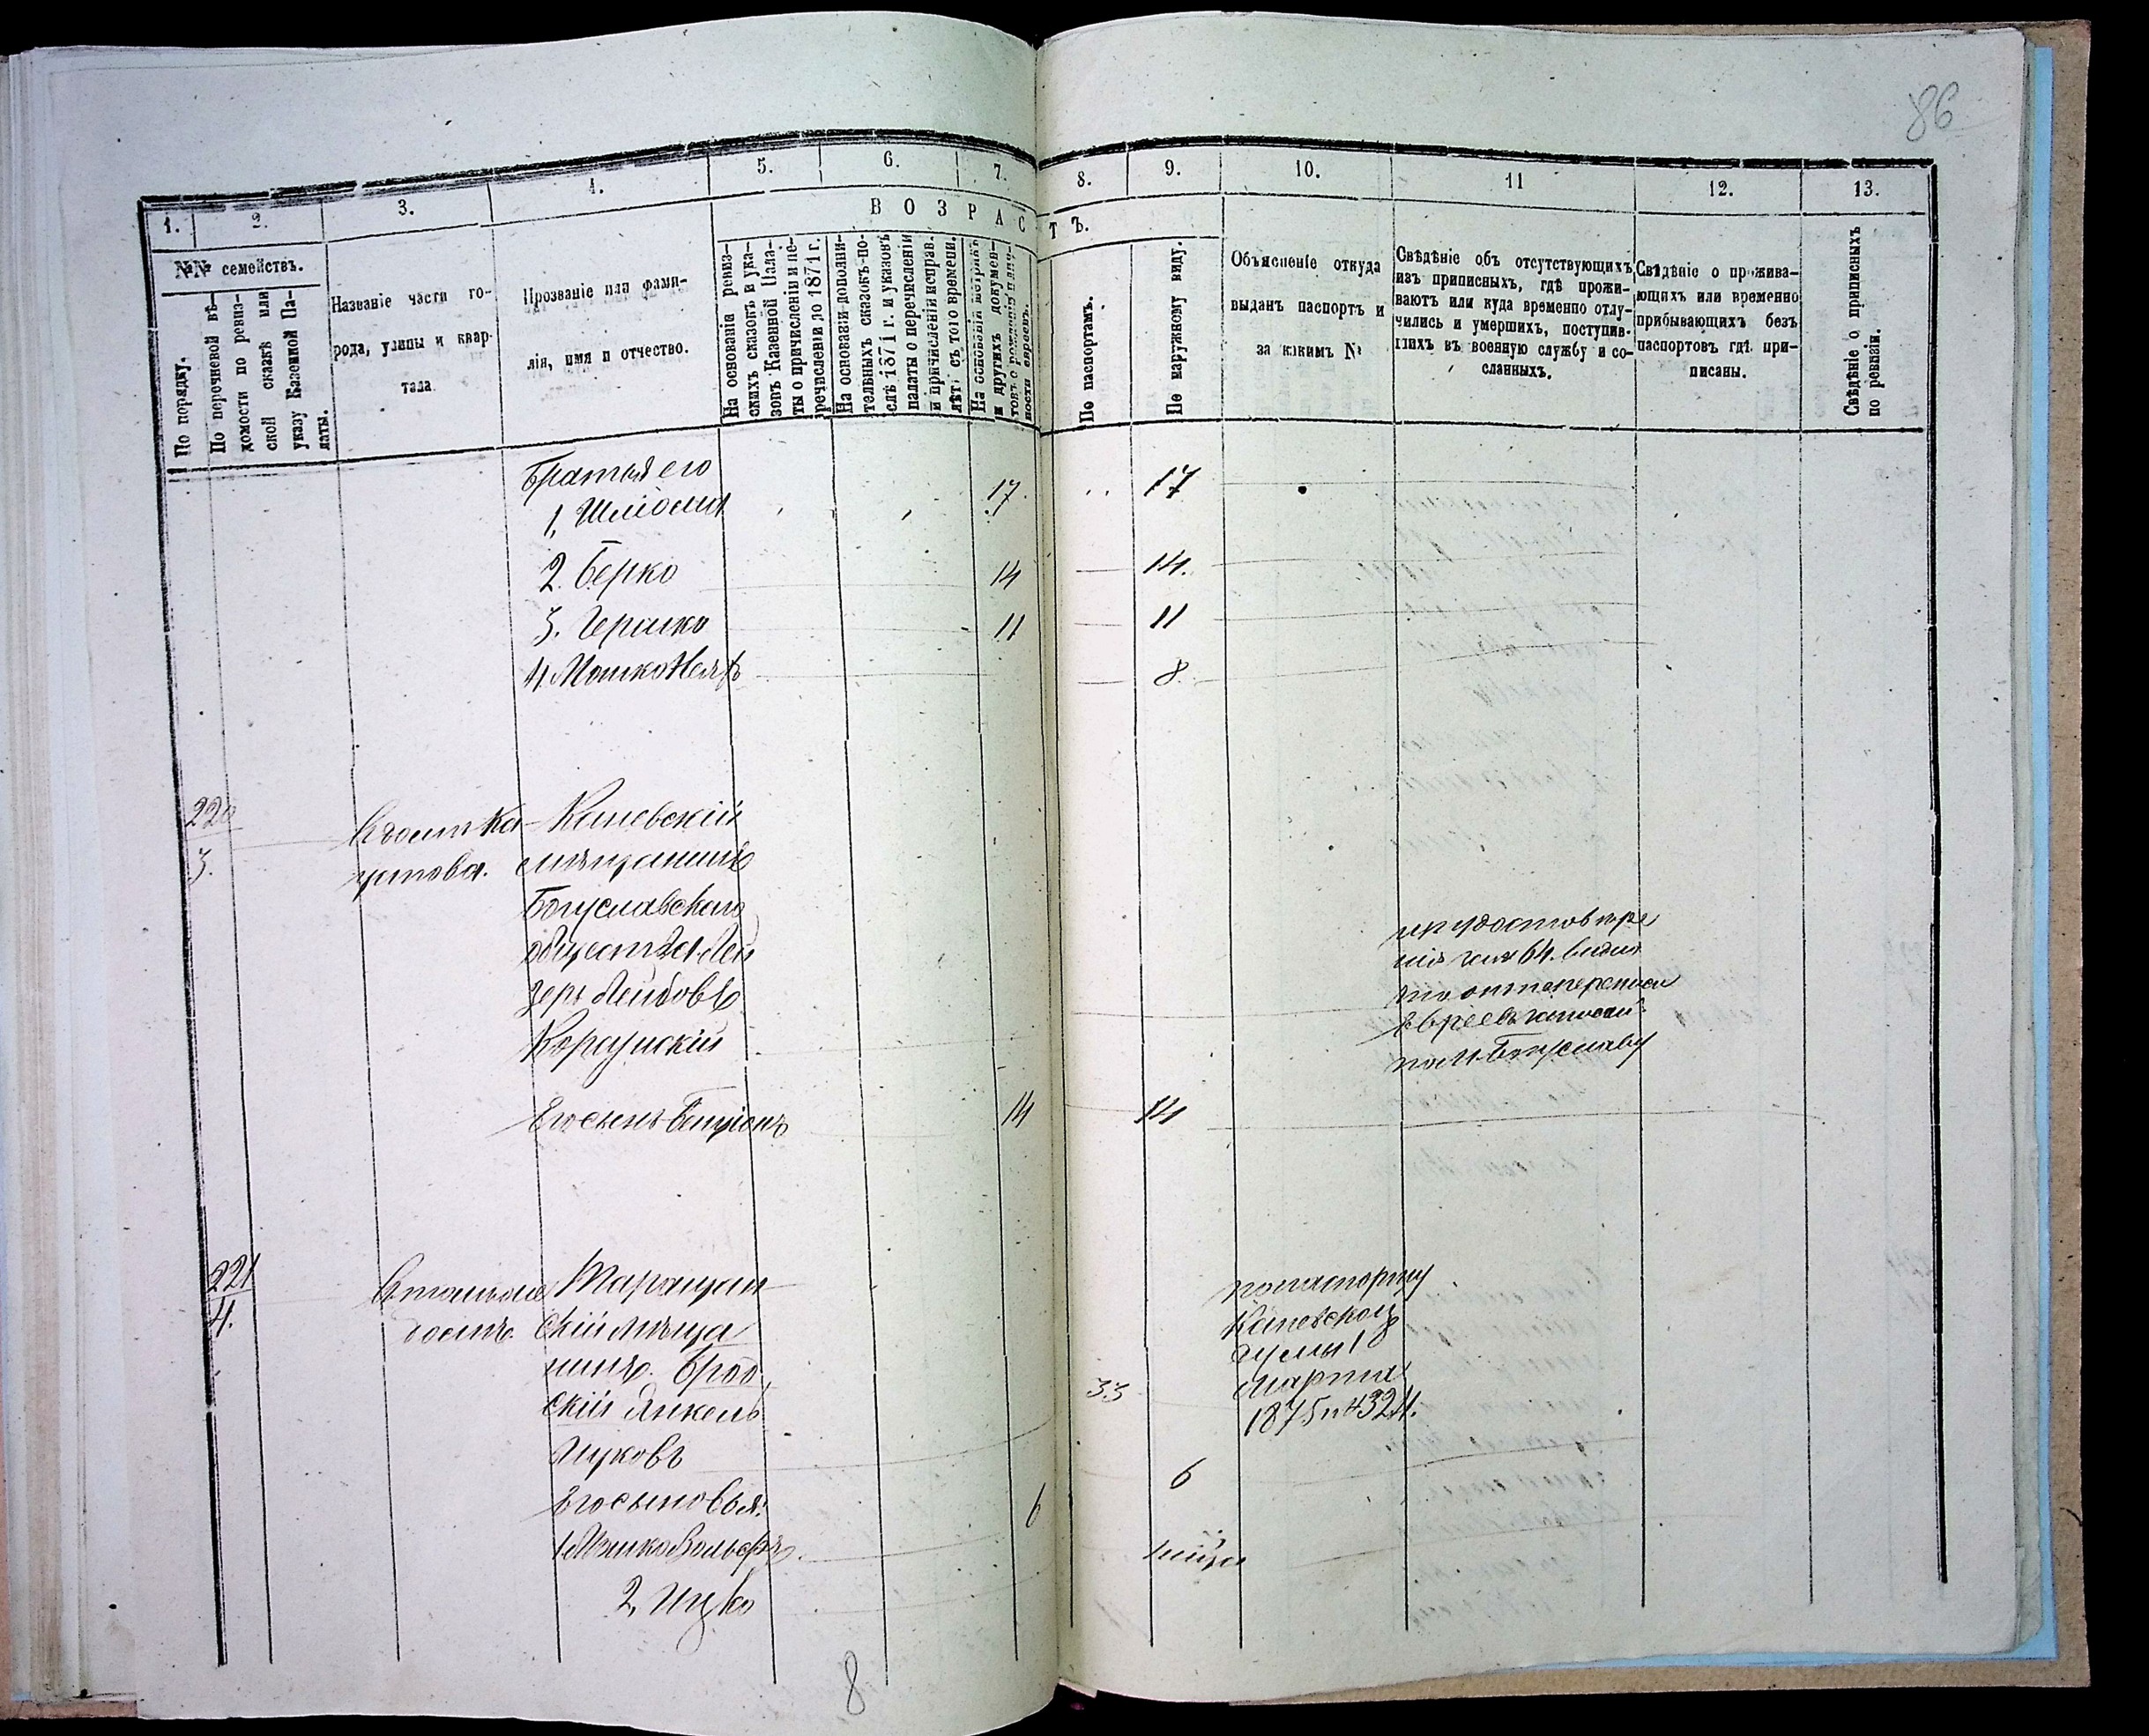 86
1.
2.
3.
4.
5.
6.
7.
8.
9.
10.
11
12.
13.
В О З Р А С
Т Ъ.
№№ семействъ.
По порядку.
По перечневой вѣ-
домости по ревиз-
ской сказкѣ или
указу Казенной Па-
латы.
Названіе части го-
рода, улицы и квар-
тала
Прозваніе или фами-
лія, имя и отчество.
На основаніи ревиз-
скихъ сказокъ и ука-
зовъ Казенной Пала-
ты о причисленіи и пе-
речисленіи до 1871 г.
На основаніи дополни-
тельныхъ сказокъ по-
слѣ 1871 г. и указовъ
палаты о перечисленіи
и причисленіи исправ.
лѣтъ съ того времени.
На основаніи метрикъ
и другихъ докумен-
товъ о рожденіи
ности евреевъ.
По паспортамъ.
По наружному виду.
Объясненіе откуда
выданъ паспортъ и
за какимъ №
Свѣдѣніе объ отсутствующихъ
изъ приписныхъ, гдѣ прожи-
ваютъ или куда временно отлу-
чились и умершихъ, поступив-
шихъ въ военную службу и со-
сланныхъ.
Свѣдѣніе о прожива-
ющихъ или временно
прибывающихъ безъ
паспортовъ гдѣ при-
писаны.
Свѣдѣніе о приписныхъ
по ревизіи.
Братья его
1, Шлиома 17. 17
2. Берко 14 14.
3. Гершко 11 11
4. Мошко 8
220
3.
Каневскій
мѣщанинъ
Богуславскаго
общества Лей
зеръ Лейбовъ
Корсунскій
по М. Богуславу
Его сынъ Бенціонъ 14 14
221
4.
Таращан
скій мѣща
нинъ. Брод
скій Янкель
Ицковъ
33
по паспорту
Каневской
Думы 18
Марта
1875
Его сыновья:
1 Мошко Вольфъ. 6 6
2, Ицко
8